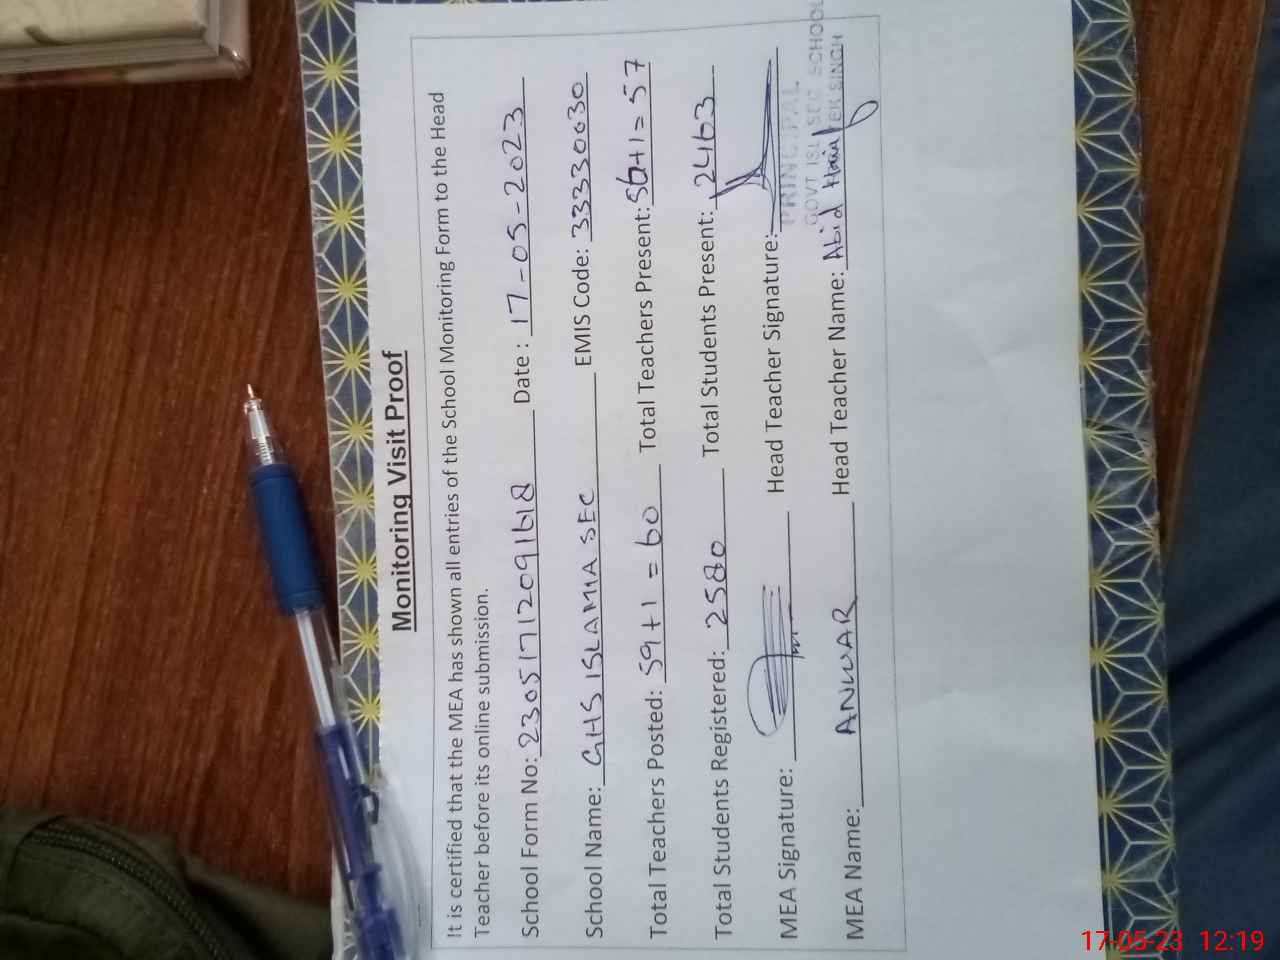 Monitoring Visit Proof
It is certified that the MEA has shown all entries of the School Monitoring Form to the Head
Teacher before its online submission.
School Form No: 23051712091618 Date : 17-05-2023
School Name: GHS ISLAMIA SEC EMIS Code: 33330030
Total Teachers Posted: 59+1 = 60 Total Teachers Present: 56+1= 57
Total Students Registered: 2580 Total Students Present: 2463
MEA Signature: Head Teacher Signature:
PRINCIPAL
GOVT ISL SEC SCHOOL
TEK SINGH
MEA Name: ANWAR Head Teacher Name: Abid
17-05-23 12:19